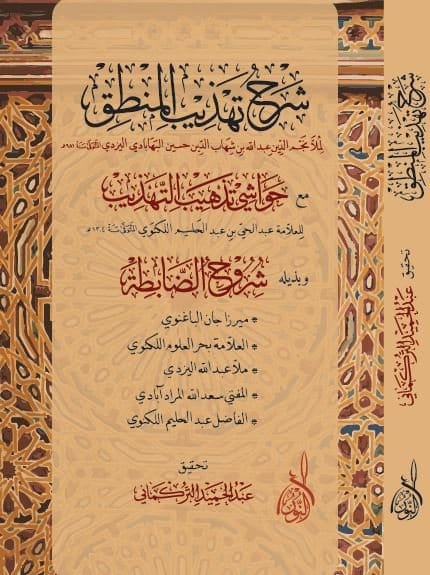 شرح تهذيب المنطق
لملا نجم الدين عبد الله بن شهاب الدين حسين البهابادي اليزدي المتوفى سنة ٩٨١هـ
مع حواشي تذهيب التهذيب
للعلامة عبد الحي بن عبد الحليم اللكنوي المتوفى سنة ١٣٠٤هـ
وبذيله شروح الضابطة
* ميرزا جان الباغنوي
* العلامة بحر العلوم اللكنوي
* ملا عبد الله اليزدي
* المفتي سعد الله المرادآبادي
* الفاضل عبد الحليم اللكنوي
تحقيق
عبد الحميد التركماني
النور
شرح تهذيب المنطق
تحقيق
عبد الحميد التركماني
النور